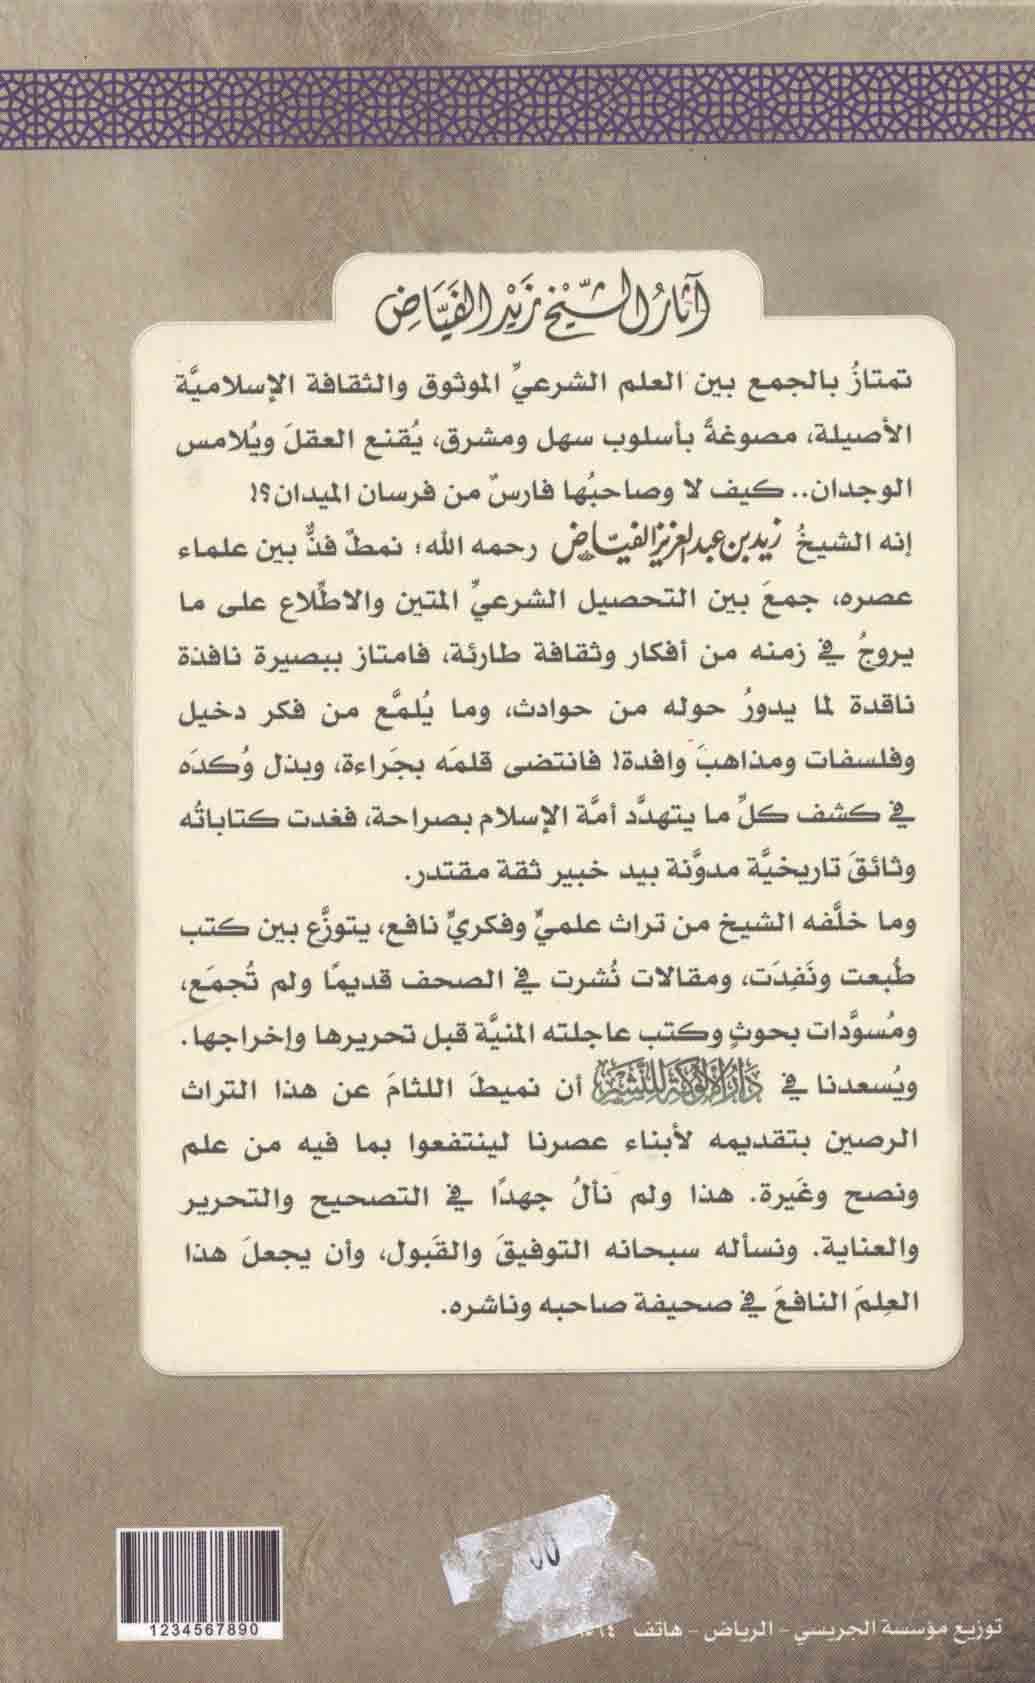 آثَارُ الشَّيْخِ زَيْدِ الفَيَّاضِ
تمتازُ بالجمع بين العلم الشرعيِّ الموثوق والثقافة الإسلاميَّة
الأصيلة، مصوغةً بأسلوب سهل ومشرق، يُقنع العقلَ ويُلامس
الوجدان.. كيف لا وصاحبُها فارسٌ من فرسان الميدان؟!
إنه الشيخُ زيد بن عبد العزيز الفيّاض رحمه الله؛ نمطٌ فذٌّ بين علماء
عصره، جمعَ بين التحصيل الشرعيِّ المتين والاطِّلاع على ما
يروجُ في زمنه من أفكار وثقافة طارئة، فامتاز ببصيرة نافذة
ناقدة لما يدورُ حوله من حوادث، وما يُلمَّع من فكر دخيل
وفلسفات ومذاهبَ وافدة! فانتضى قلمَه بجَراءة، وبذل وُكدَه
في كشف كلِّ ما يتهدَّد أمَّة الإسلام بصراحة، فغدت كتاباتُه
وثائقَ تاريخيَّة مدوَّنة بيد خبير ثقة مقتدر.
وما خلَّفه الشيخ من تراث علميٍّ وفكريٍّ نافع، يتوزَّع بين كتب
طُبعت ونَفِدَت، ومقالات نُشرت في الصحف قديمًا ولم تُجمَع،
ومُسوَّدات بحوثٍ وكتب عاجلته المنيَّة قبل تحريرها وإخراجها.
ويُسعدنا في دَارُ الأَلُوكَةِ لِلنَّشْرِ أن نميطَ اللثامَ عن هذا التراث
الرصين بتقديمه لأبناء عصرنا لينتفعوا بما فيه من علم
ونصح وغَيرة. هذا ولم نألُ جهدًا في التصحيح والتحرير
والعناية. ونسأله سبحانه التوفيقَ والقَبول، وأن يجعلَ هذا
العِلمَ النافعَ في صحيفة صاحبه وناشره.
1234567890
توزيع مؤسسة الجريسي - الرياض - هاتف